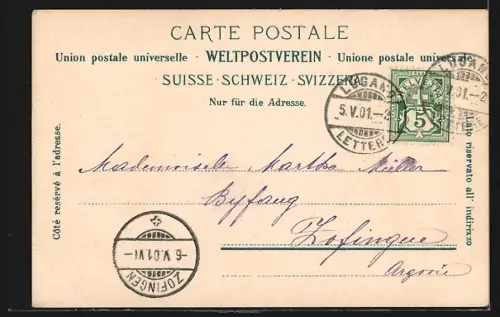 CARTE POSTALE
Union postale universelle - WELTPOSTVEREIN - Unione postale universale
SUISSE · SCHWEIZ · SVIZZERA
Nur für die Adresse.
Côté resérvé à l'adresse.
Lato riservato all' indirizzo
HELVETIA
5
LUGANO
5.V.01.–2
LETTER
LUGANO
.01.–2
LETTER
Mademoiselle Martha Müller
Byfang
Zofingue
Argovie
ZOFINGEN
–6.V.01.VI–